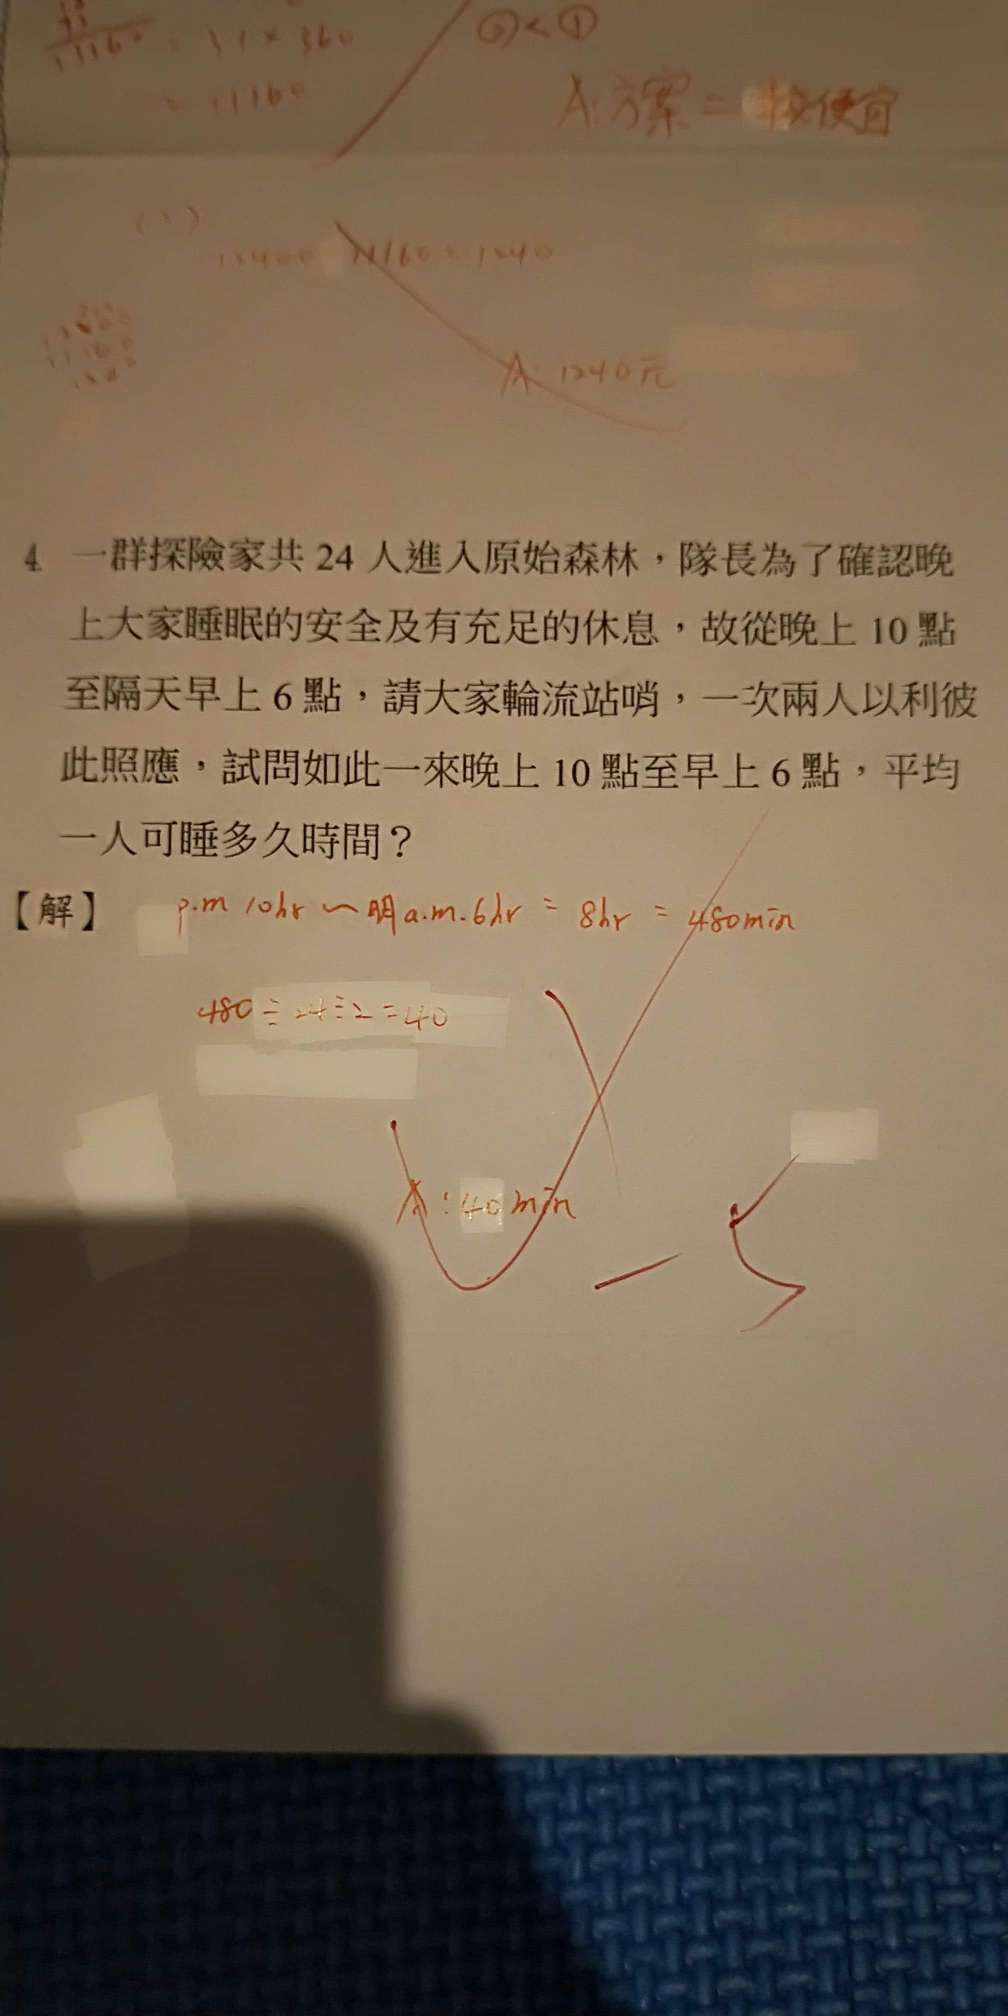 1160 = 31 × 360
= 11160
② < ①
A: 方案二較便宜
(2)
12400 - 11160 = 1240
A: 1240元
4. 一群探險家共 24 人進入原始森林,隊長為了確認晚
上大家睡眠的安全及有充足的休息,故從晚上 10 點
至隔天早上 6 點,請大家輪流站哨,一次兩人以利彼
此照應,試問如此一來晚上 10 點至早上 6 點,平均
一人可睡多久時間?
【解】 p.m 10hr ~ 明 a.m. 6hr = 8hr = 480min
480 ÷ 24 ÷ 2 = 40
A: 40 min
-5